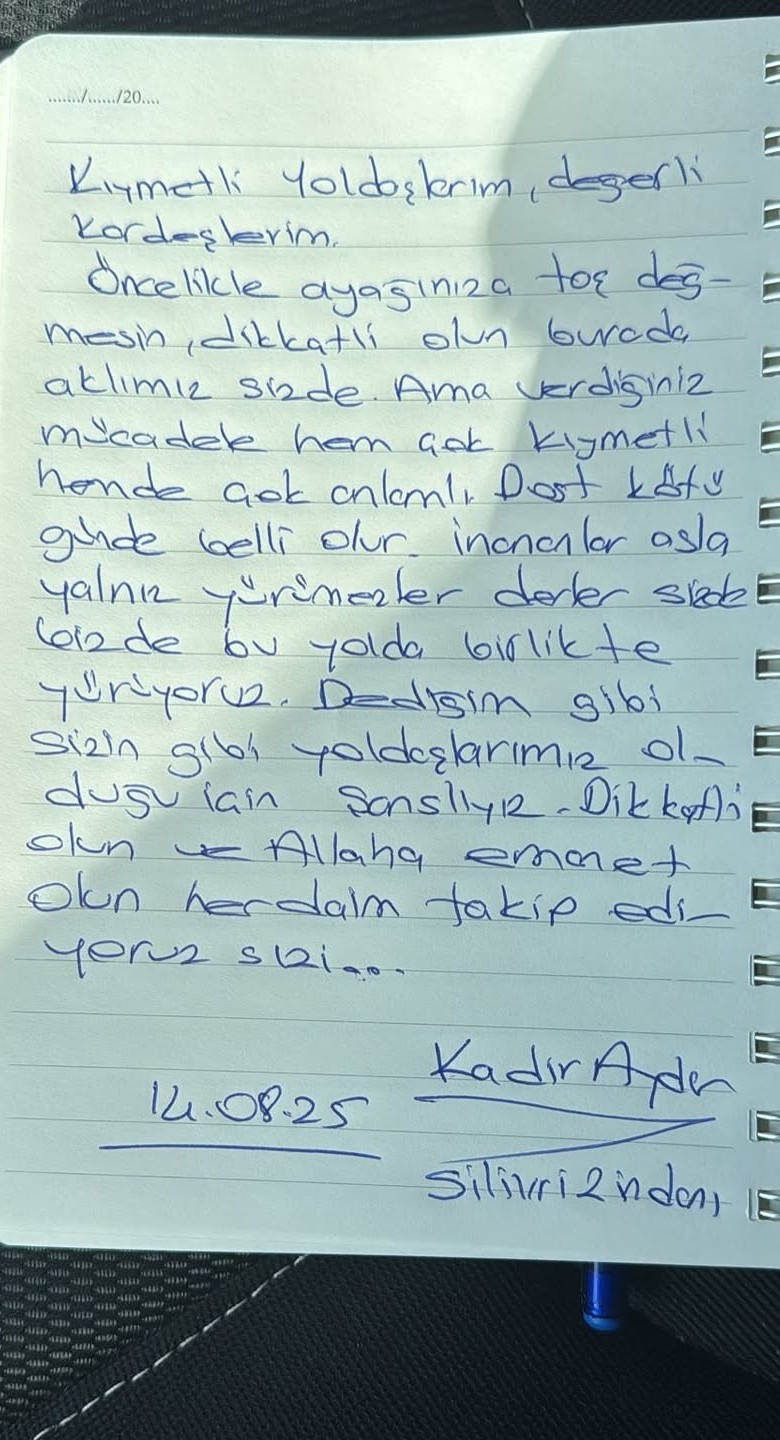 ....../....../20....
Kıymetli Yoldaşlarım, değerli
Kardeşlerim.
Öncelikle ayağınıza taş değ-
mesin, dikkatli olun burada
aklımız sizde. Ama verdiğiniz
mücadele hem çok kıymetli
hemde çok anlamlı. Dost kötü
günde belli olur. inananlar asla
yalnız yürümezler derler sizde
bizde bu yolda birlikte
yürüyoruz. Dediğim gibi
sizin gibi yoldaşlarımız ol-
duğu için şanslıyız. Dikkatli
olun ve Allaha emanet
olun herdaim takip edi-
yoruz sizi...
Kadir Aydar
14.08.25
Silivri Zindanı